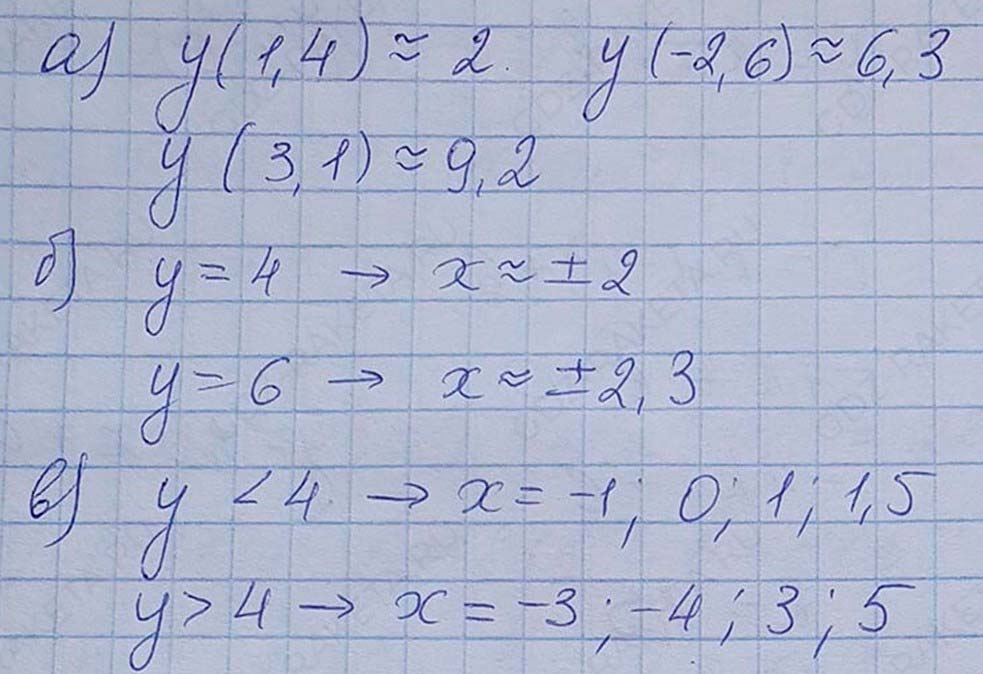 а) y(1,4) ≈ 2. y(-2,6) ≈ 6,3
y(3,1) ≈ 9,2
б) y = 4 → x ≈ ±2
y = 6 → x ≈ ±2,3
в) y < 4 → x = -1; 0; 1; 1,5
y > 4 → x = -3; -4; 3; 5